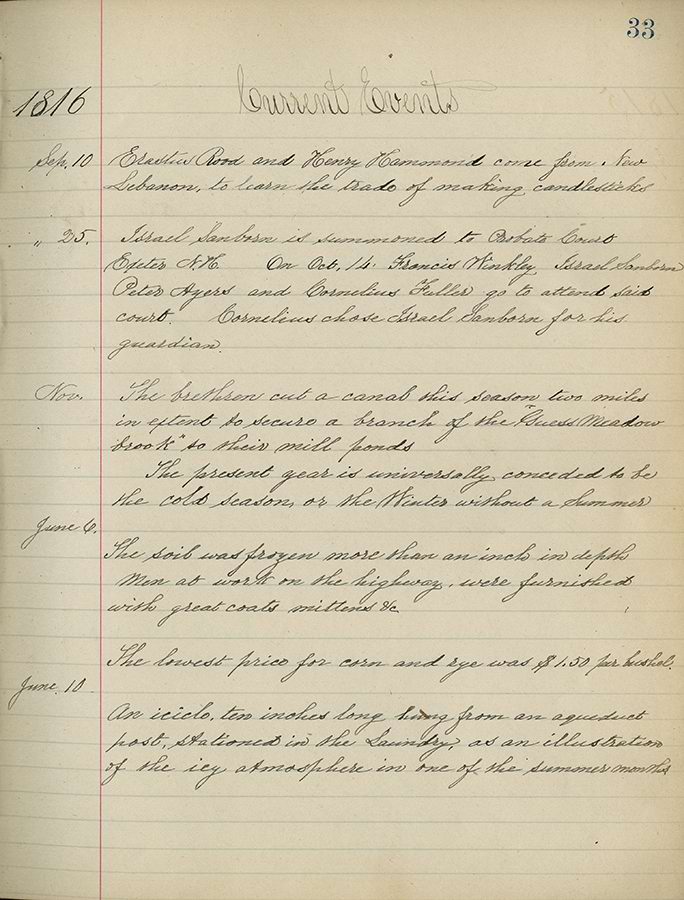 33
1816 Current Events
Sep. 10 Erastus Rood and Henry Hammond come from New
Lebanon, to learn the trade of making candlesticks
„ 25. Israel Sanborn is summoned to Probate Court
Exeter N.H. On Oct. 14. Francis Winkley, Israel Sanborn
Peter Ayers and Cornelius Fuller go to attend said
court. Cornelius chose Israel Sanborn for his
guardian.
Nov. The brethren cut a canal this season two miles
in extent to secure a branch of the "Guess Meadow
brook" to their mill ponds
The present year is universally conceded to be
the cold season, or the Winter without a Summer
June 6.
The soil was frozen more than an inch in depth
Men at work on the highway, were furnished
with great coats mittens &c
The lowest price for corn and rye was $1.50 per bushel.
June. 10
An icicle, ten inches long hung from an aqueduct
post, stationed in the Laundry, as an illustration
of the icy atmosphere in one of the summer months